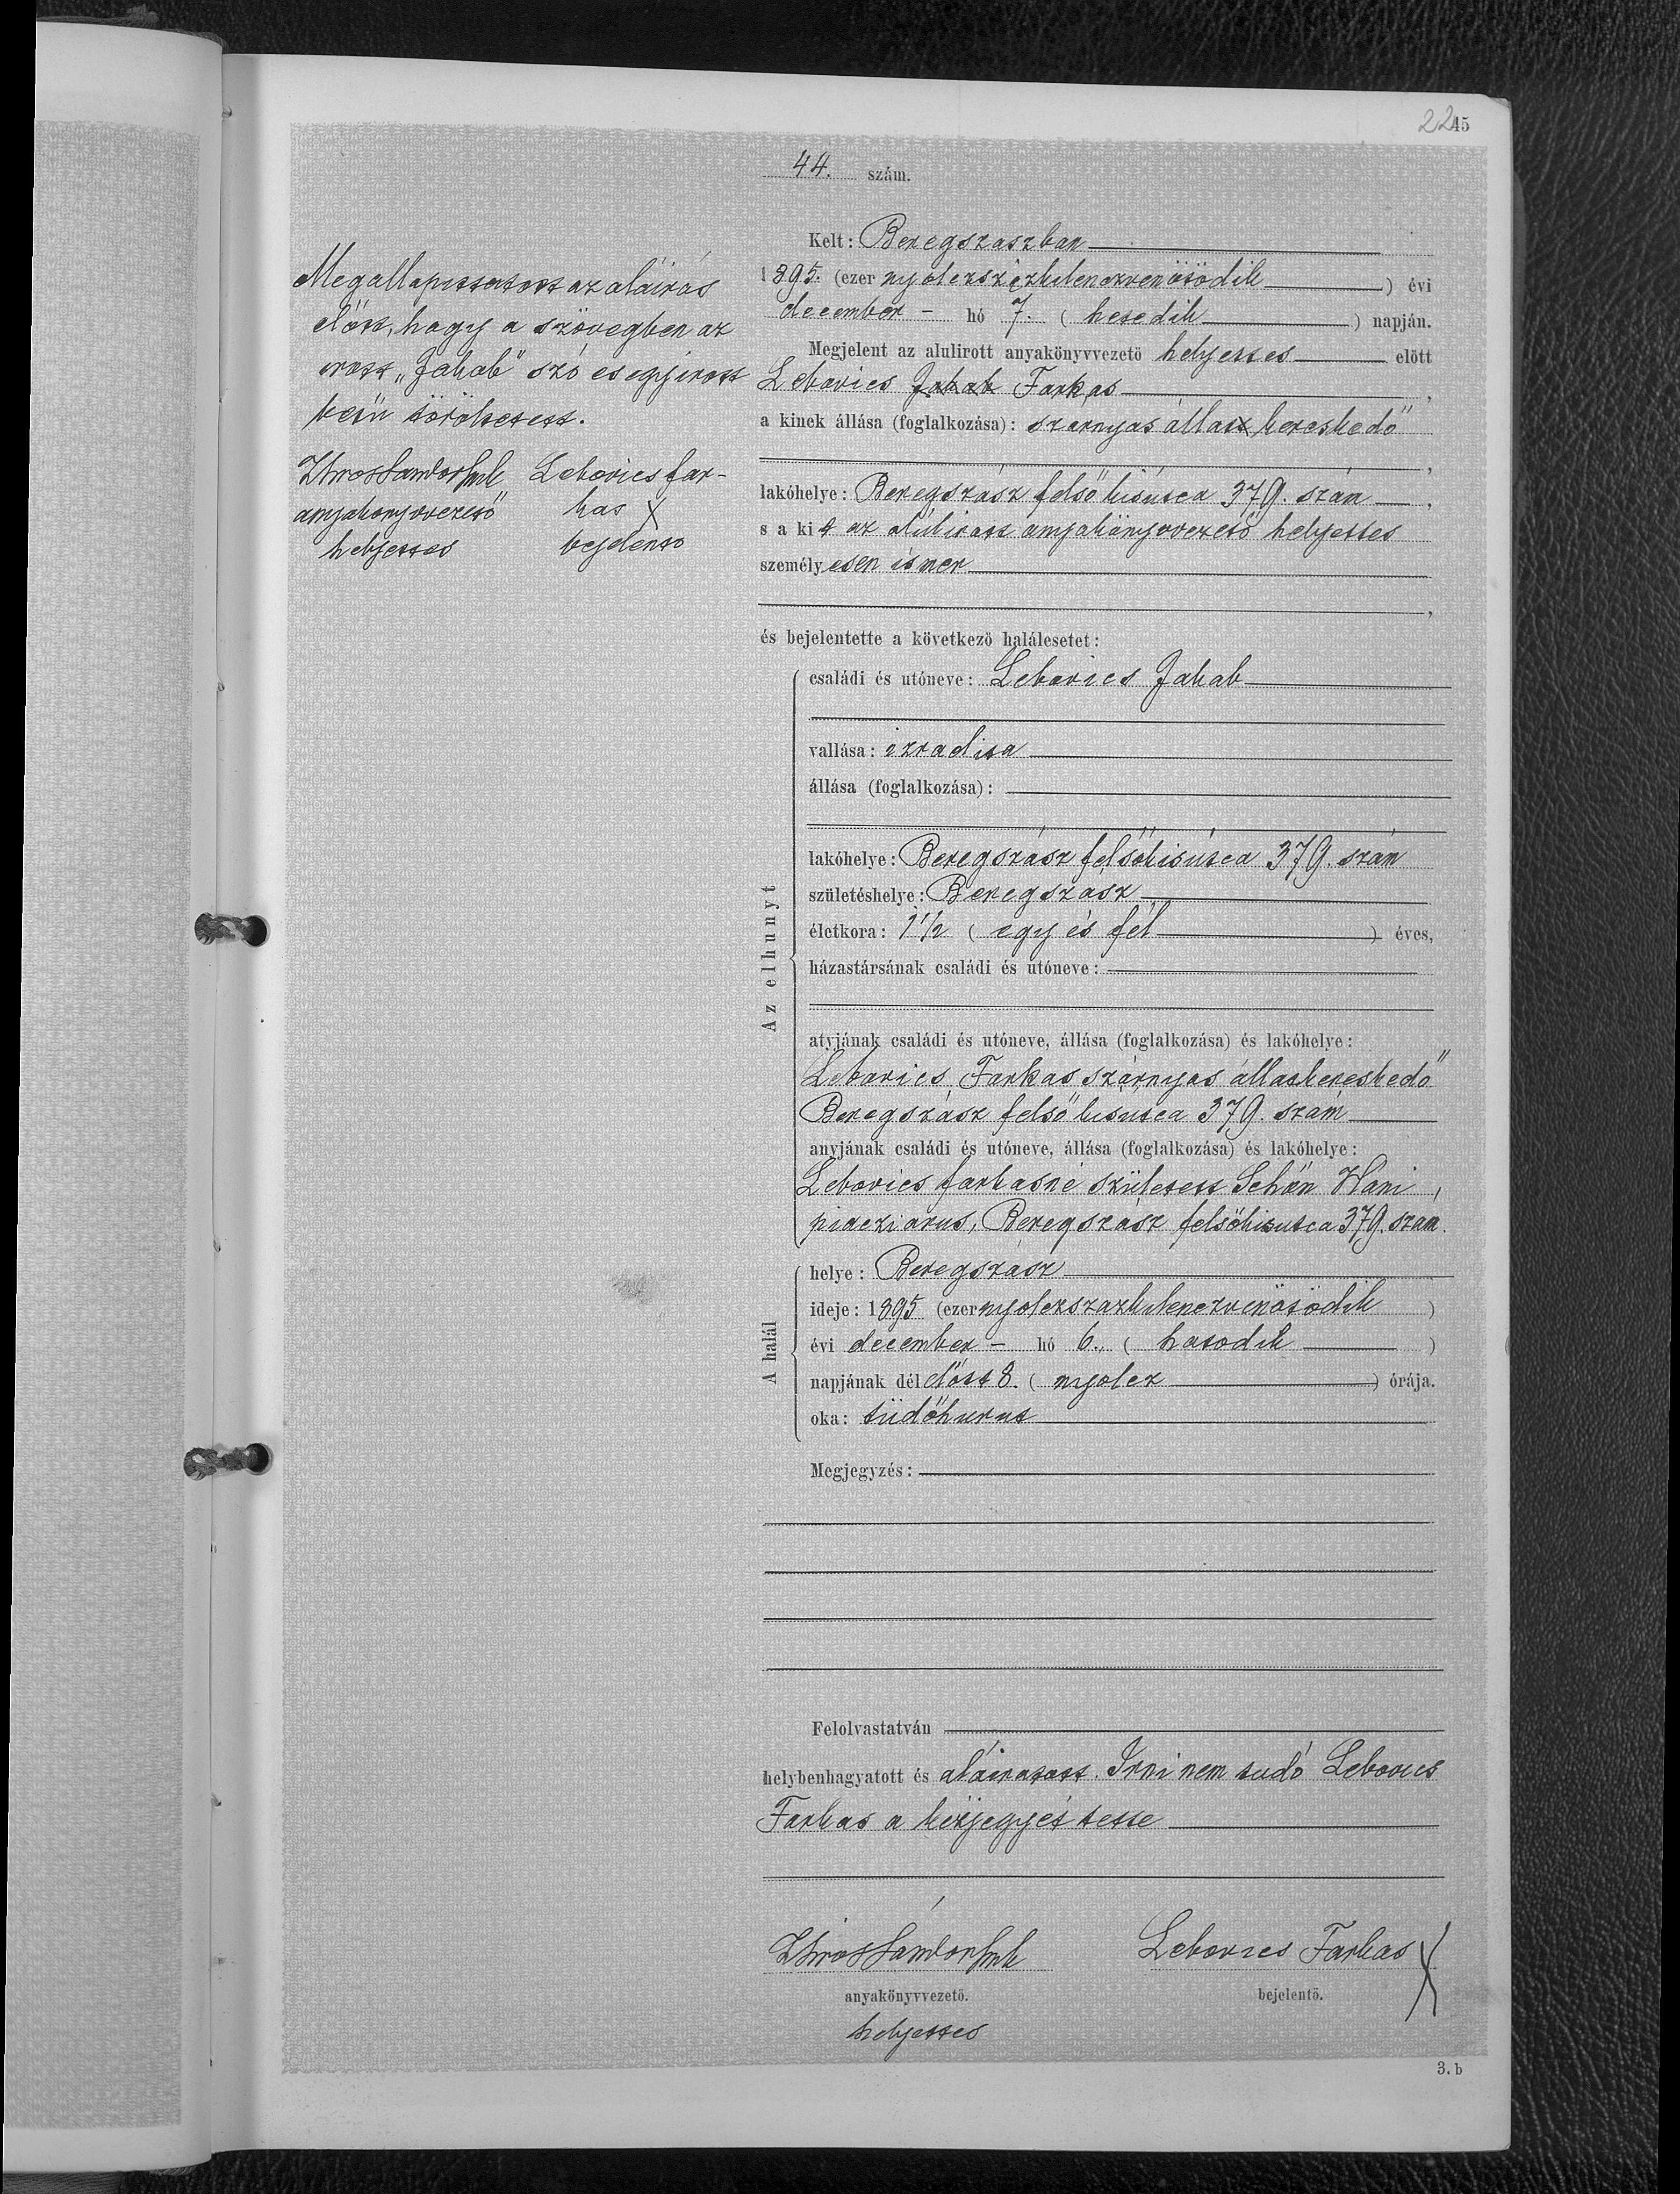 2245
44. szám.
Kelt: Beregszászban
1895. (ezer nyolczszázkilenczvenötödik) évi
december - hó 7. (hetedik) napján.
Megjelent az alulirott anyakönyvvezető helyettes előtt
Lebovics Jakab Farkas,
a kinek állása (foglalkozása): szárnyas állat kereskedő
,
lakóhelye: Beregszász felső kisutca 379. szám,
s a kit az alulirott anyakönyvvezető helyettes
személyesen ismer
,
és bejelentette a következő halálesetet:
Az elhunyt
családi és utóneve: Lebovics Jakab
vallása: izraelita
állása (foglalkozása):
lakóhelye: Beregszász felsőkisutca 379. szám
születéshelye: Beregszász
életkora: 1 1/2 (egy és fél) éves,
házastársának családi és utóneve:
atyjának családi és utóneve, állása (foglalkozása) és lakóhelye:
Lebovics Farkas szárnyas állatkereskedő
Beregszász felső kisutca 379. szám
anyjának családi és utóneve, állása (foglalkozása) és lakóhelye:
Lebovics Farkasné született Schön Háni,
piaczi árus, Beregszász felsőkisutca 379. szam.
A halál
helye: Beregszász
ideje: 1895 (ezernyolczszazkilenczvenötödik)
évi december - hó 6. (hatodik)
napjának délelőtt 8. (nyolcz) órája.
oka: tüdőhurut
Megjegyzés:
Felolvastatván
helybenhagyatott és aláiratott. Irni nem tudó Lebovics
Farkas a kézjegyét tette
Sándor
anyakönyvvezető.
helyettes
Lebovics Farkas X
bejelentő.
3. b
Megallapittatott az aláirás
előtt, hogy a szövegben az
irott „Jakab" szó es egy irott
betű töröltetett.
Sándor
anyakönyvvezető
helyettes
Lebovics Far-
kas X
bejelentő